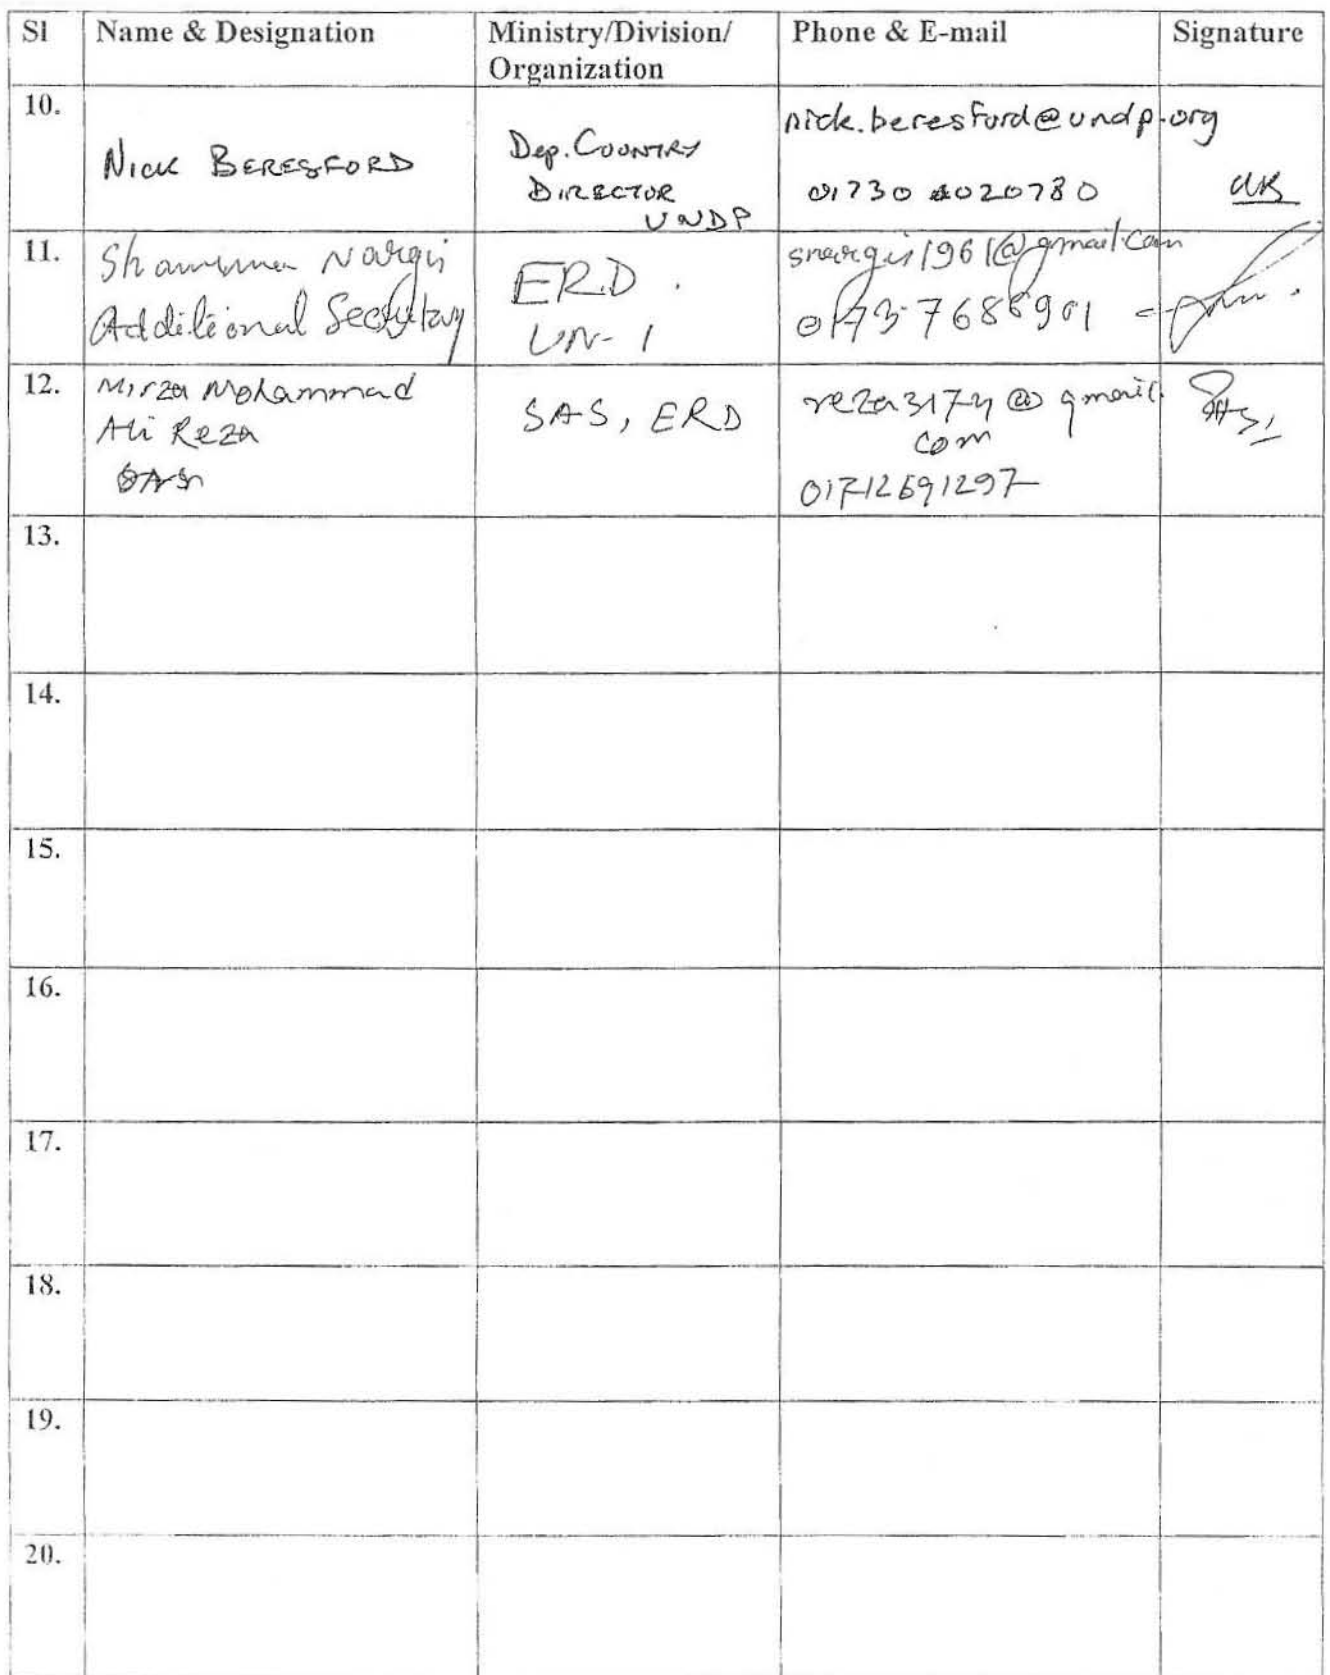 Sl Name & Designation Ministry/Division/ Organization Phone & E-mail Signature
10.
NICK BERESFORD
Dep. COUNTRY
DIRECTOR
UNDP
nick.beresford@undp.org
01730 4020780
11.
Shamima Nargis
Additional Secretary
ERD.
UN-1
snargis1961@gmail.com
12.
Mirza Mohammad
Ali Reza
SAS, ERD
reza3174@gmail.
com
01712691297
13.
14.
15.
16.
17.
18.
19.
20.